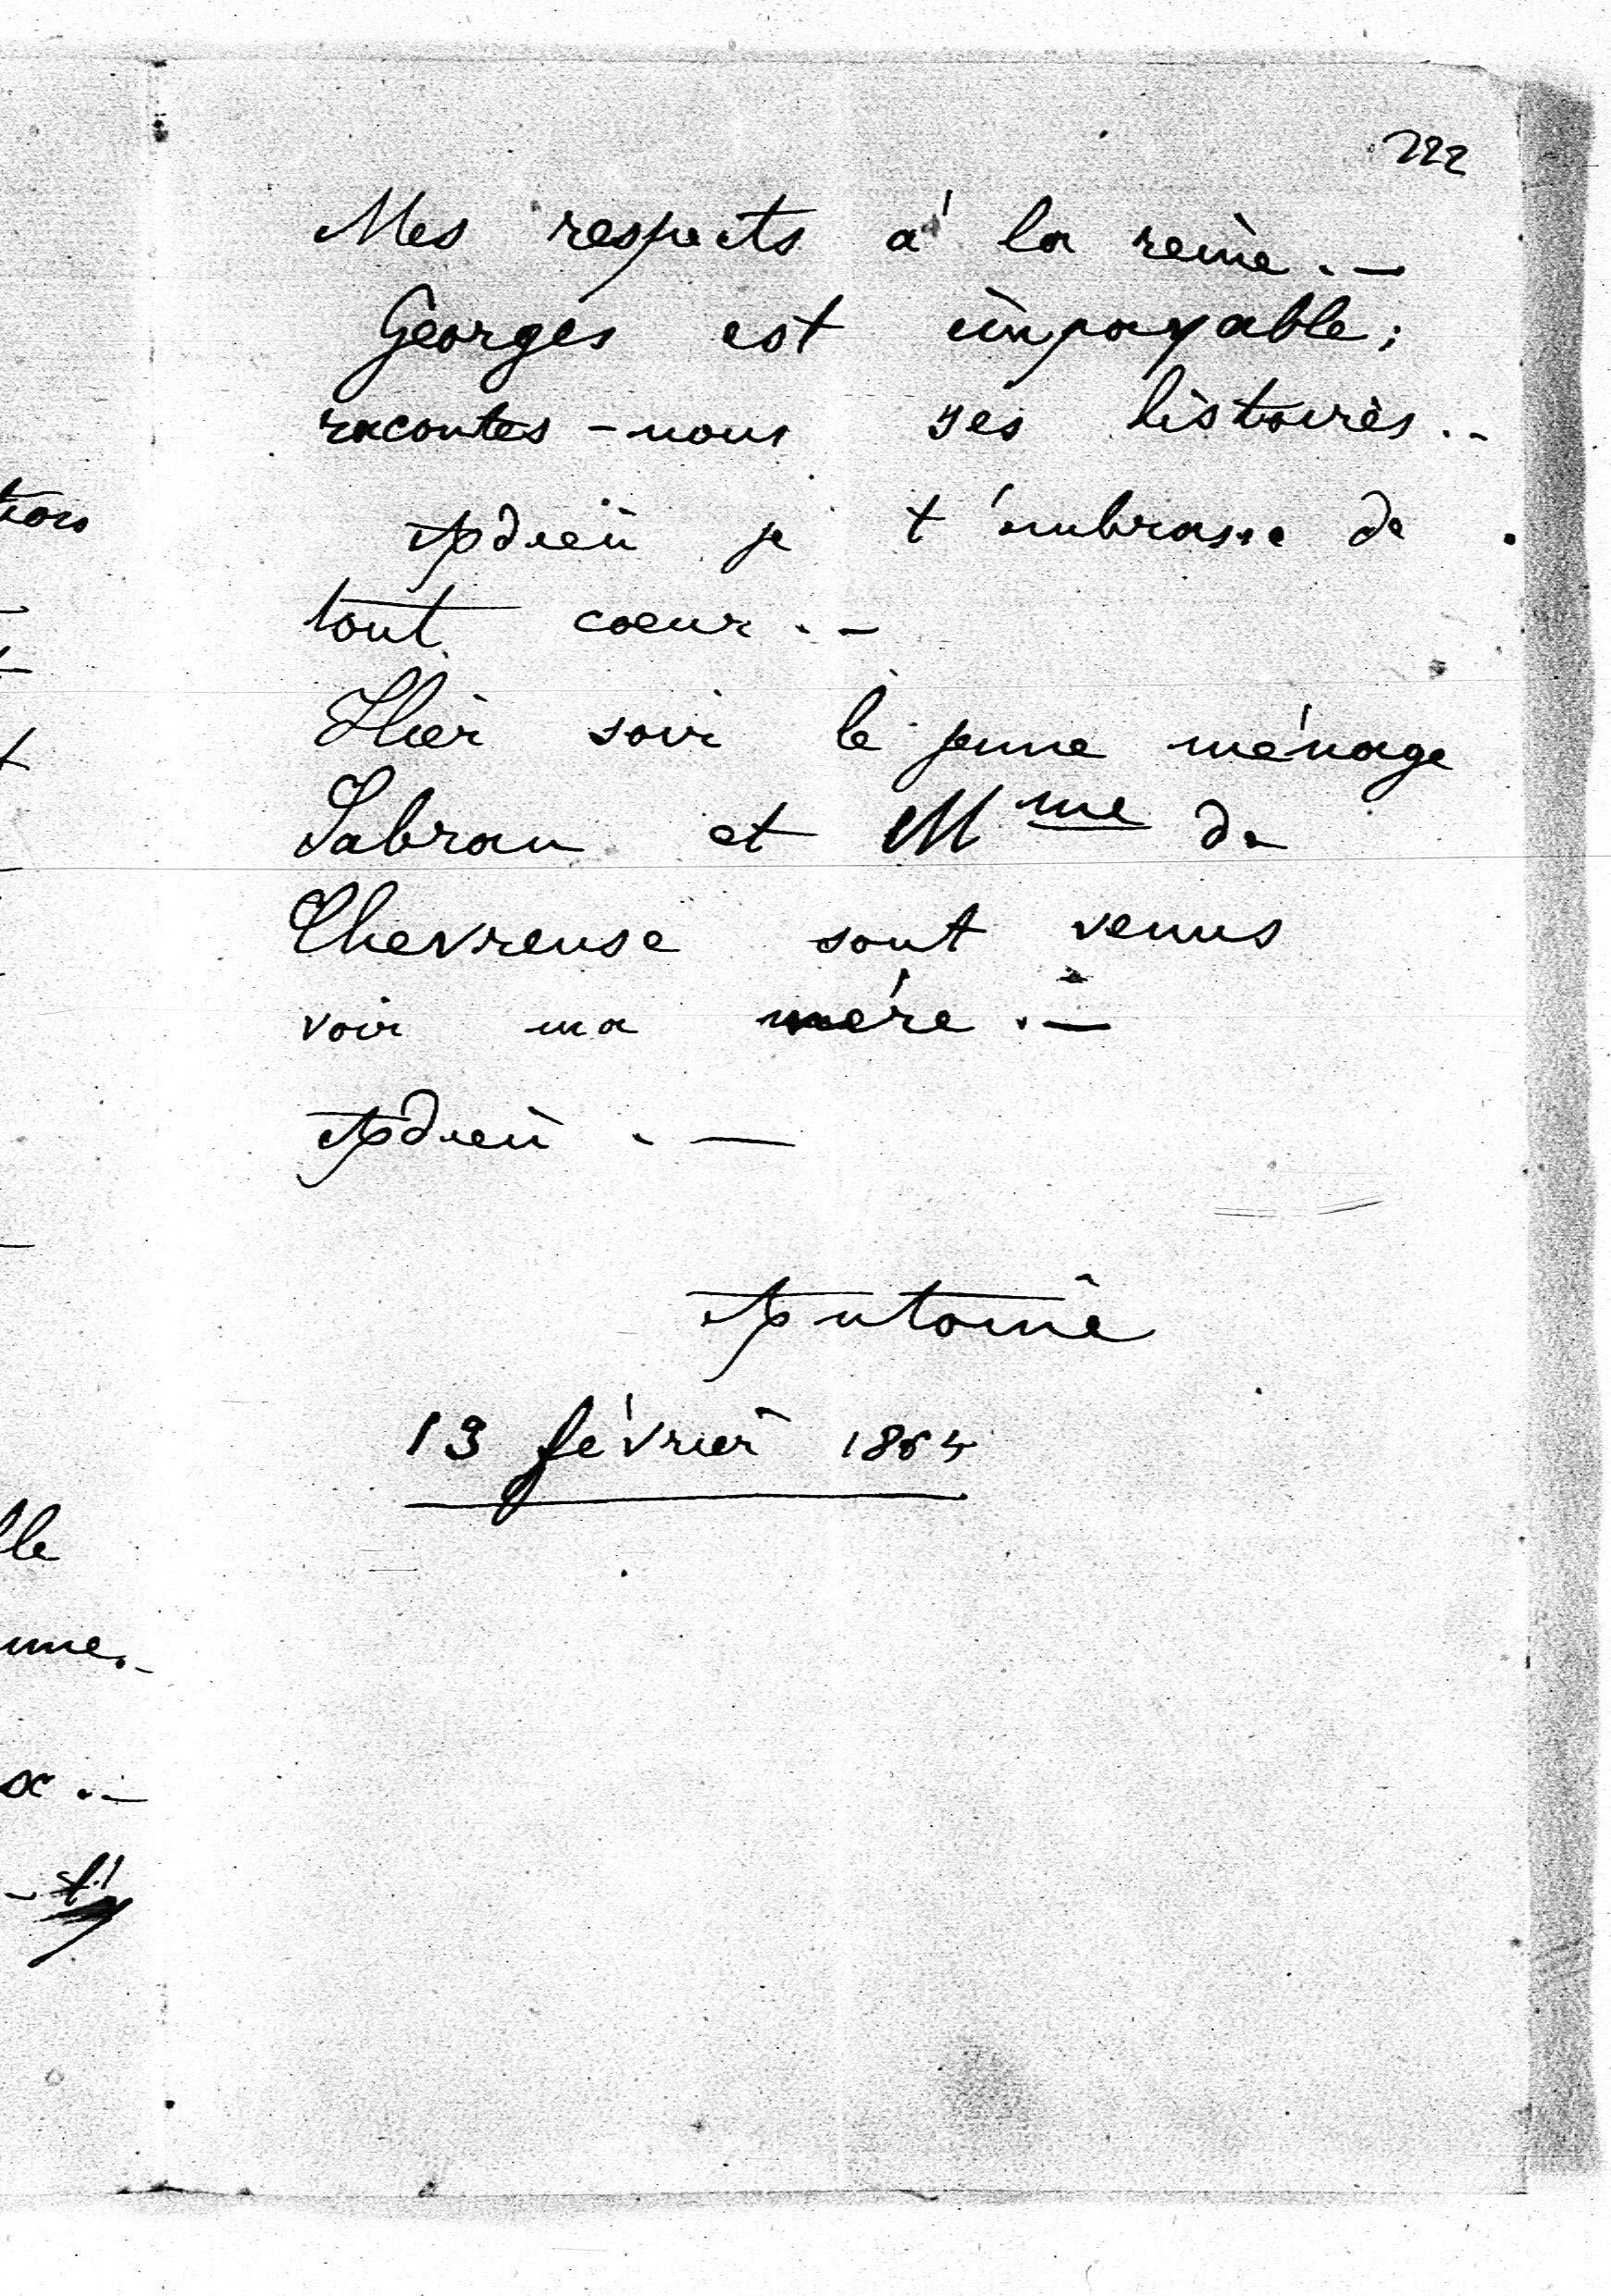 222
Mes respects à la reine. —
Georges est impayable;
racontes-nous ses histoires. -
Adieu je t'embrasse de
tout coeur. —
Hier soir le jeune ménage
Sabran et Mme de
Chevreuse sont venus
voir ma mère. —
Adieu. —
Antoine
13 février 1864